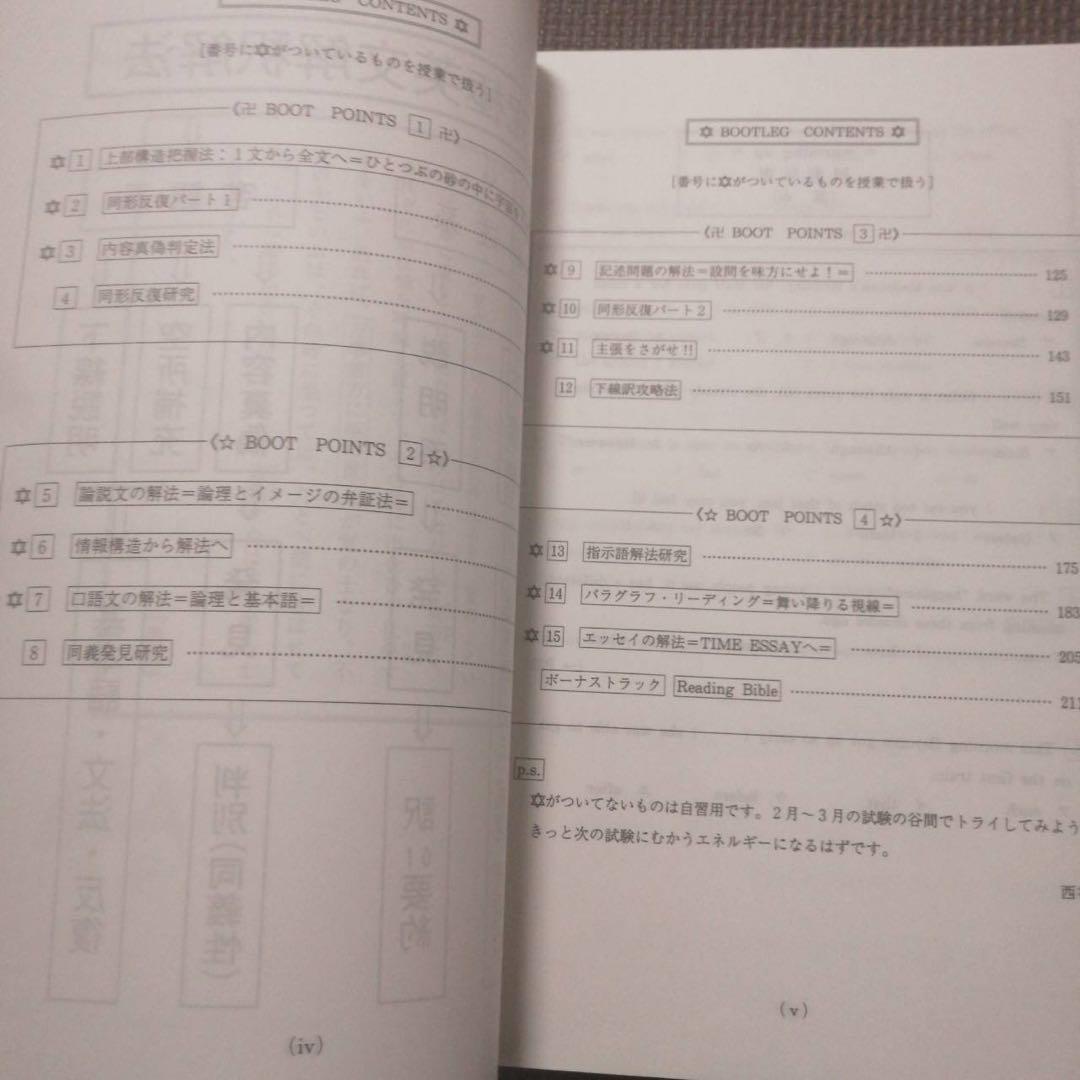 CONTENTS ✡
[番号に✡がついているものを授業で扱う]
《卍 BOOT POINTS 1 卍》
✡ 1 上部構造把握法：1文から全文へ＝ひとつぶの砂の中に宇宙を
✡ 2 同形反復パート1
✡ 3 内容真偽判定法
4 同形反復研究
《☆ BOOT POINTS 2 ☆》
✡ 5 論説文の解法＝論理とイメージの弁証法＝
✡ 6 情報構造から解法へ
✡ 7 口語文の解法＝論理と基本語＝
8 同義発見研究
(iv)
✡ BOOTLEG CONTENTS ✡
[番号に✡がついているものを授業で扱う]
《卍 BOOT POINTS 3 卍》
✡ 9 記述問題の解法＝設問を味方にせよ！＝ 125
✡ 10 同形反復パート2 129
✡ 11 主張をさがせ!! 143
12 下線訳攻略法 151
《☆ BOOT POINTS 4 ☆》
✡ 13 指示語解法研究 175
✡ 14 パラグラフ・リーディング＝舞い降りる視線＝ 183
✡ 15 エッセイの解法＝TIME ESSAYへ＝ 205
ボーナストラック Reading Bible 211
p.s.
✡がついてないものは自習用です。2月～3月の試験の谷間でトライしてみよう
きっと次の試験にむかうエネルギーになるはずです。
西
(v)